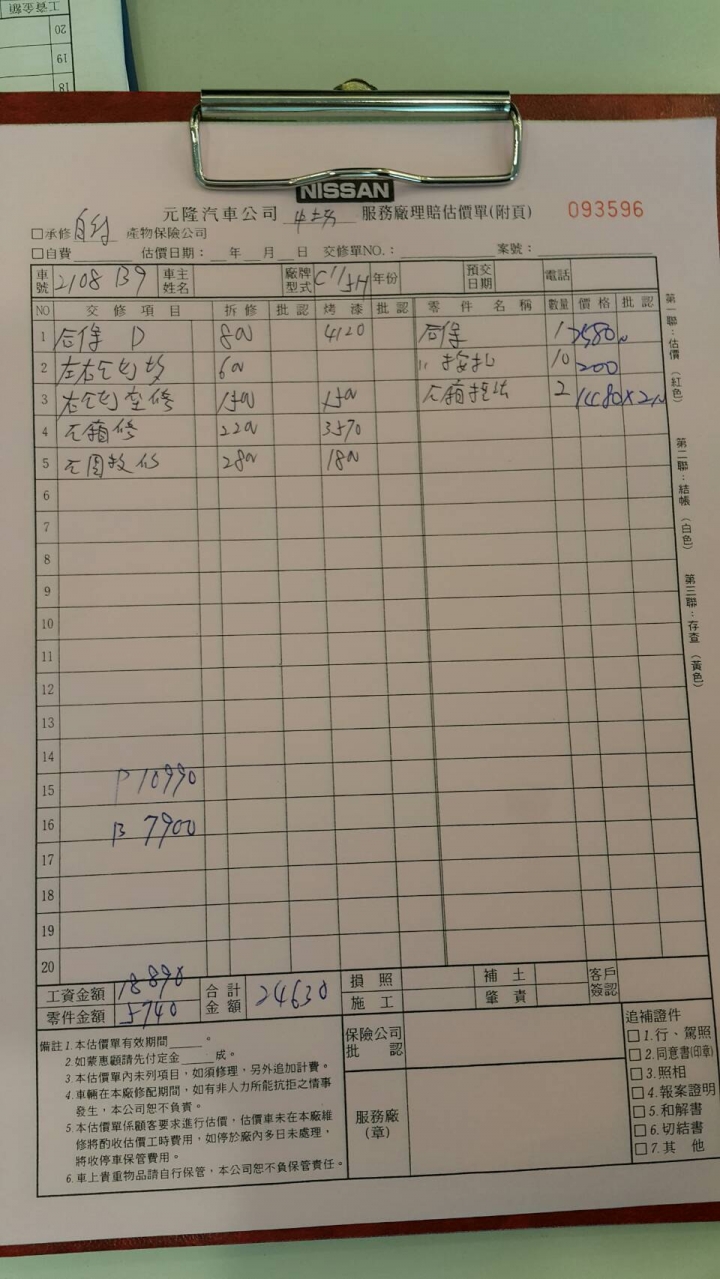 工資金額
20
19
18
NISSAN
元隆汽車公司 服務廠理賠估價單(附頁) 093596
□承修 產物保險公司
□自費 估價日期： 年 月 日 交修單NO.： 案號：
車號 2108 B9 車主姓名 廠牌型式 C11JH 年份 預交日期 電話
NO 交修項目 拆修 批認 烤漆 批認 零件名稱 數量 價格 批認
1 后保 D 800 4120 后保 1 2580
2 600 10 200
3 1500 1500 2 1480X2
4 2200 3570
5 2800 1800
6
7
8
9
10
11
12
13
14
15 P 10990
16 B 7900
17
18
19
20
工資金額 18890 合計金額 24630 損照 補土 客戶簽認
零件金額 5740 施工 肇責
備註1.本估價單有效期間 。
2.如蒙惠顧請先付定金 成。
3.本估價單內未列項目，如須修理，另外追加計費。
4.車輛在本廠修配期間，如有非人力所能抗拒之情事
發生，本公司恕不負責。
5.本估價單係顧客要求進行估價，估價車未在本廠維
修將酌收估價工時費用，如停於廠內多日未處理，
將收停車保管費用。
6.車上貴重物品請自行保管，本公司恕不負保管責任。
保險公司批認
服務廠(章)
追補證件
□1.行、駕照
□2.同意書(印章)
□3.照相
□4.報案證明
□5.和解書
□6.切結書
□7.其 他
第一聯：估價（紅色）
第二聯：結帳（白色）
第三聯：存查（黃色）